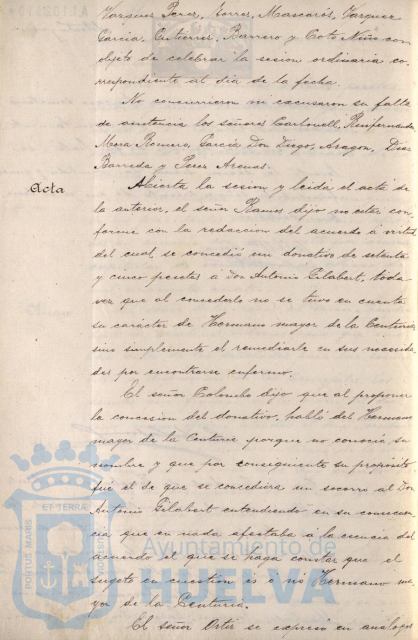 Vazquez Perez, Torres, Mascarós, Vazquez
García, Gutierrez, Barrero y Coto Niño con
objeto de celebrar la sesion ordinaria co-
rrespondiente al dia de la fecha.
No concurrieron ni excusaron su falta
de asistencia los señores Carbonell, Ruifernandez,
Mora Romero, García Don Diego, Aragon, Diaz
Barreda y Perez Arenas.
Acta
Abierta la sesion y leida el acta de
la anterior, el señor Ramos dijo no estar con-
forme con la redaccion del acuerdo á virtud
del cual, se concedió un donativo de setenta
y cinco pesetas á Don Antonio Gilabert, toda
vez que al concederlo no se tuvo en cuenta
su carácter de Hermano mayor de la Centuria,
sino simplemente el remediarle en sus necesida-
des por encontrarse enfermo.
El señor Colombo dijo que al proponer
la concesion del donativo, habló del Hermano
mayor de la Centuria porque no conocia su
nombre y que por consiguiente su propósito
fué el de que se concediera un socorro al Don
Antonio Gilabert entendiendo en su consecuen-
cia que en nada afectaba á la esencia del
acuerdo el que se haga constar que el
sugeto en cuestion es ó nó Hermano ma-
yor de la Centuria.
El señor Ortiz se expresó en análogos
PORTUS MARIS ET TERRÆ
Ayuntamiento de
HUELVA